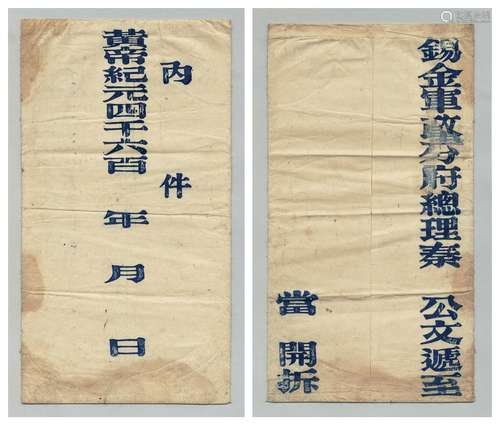 內件
黄帝紀元四千六百 年 月 日
錫金軍政分府總理秦 公文遞至
當 開拆